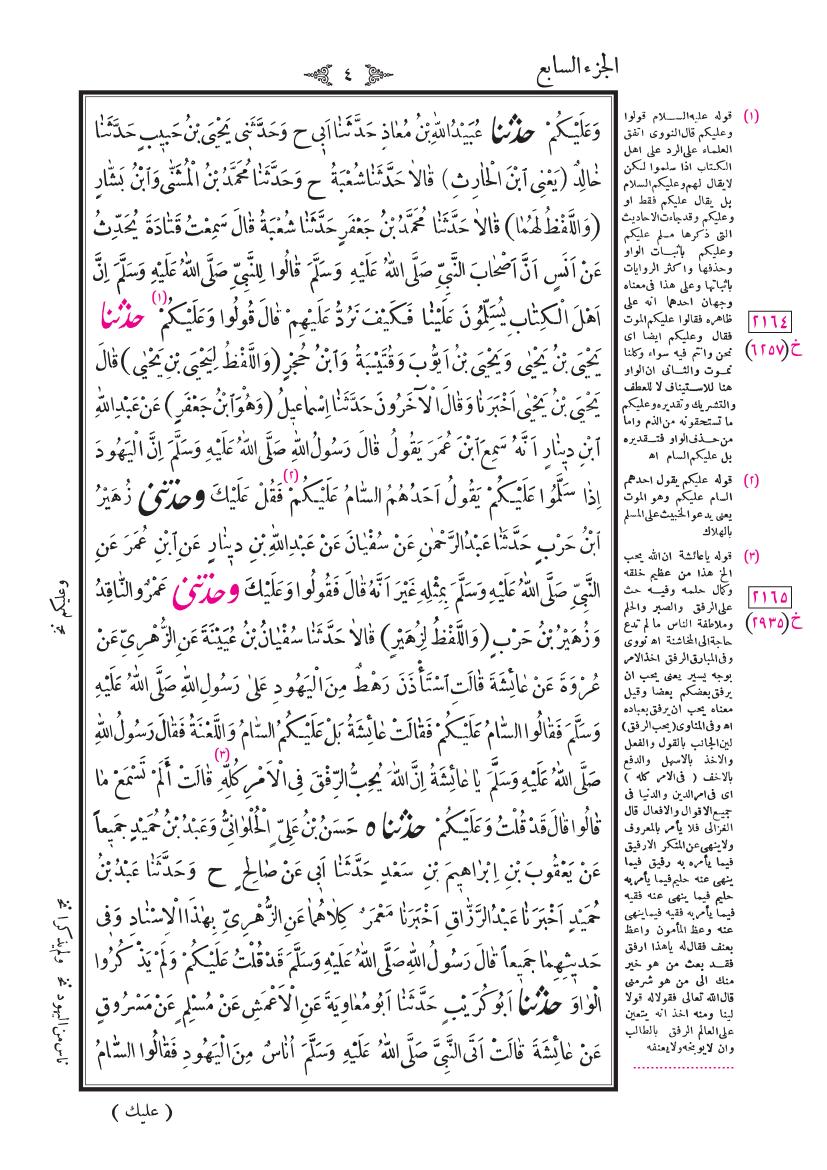 الجزء السابع
٤
وَعَلَيْكُمْ حدثنا عُبَيْدُ اللّٰهِ بْنُ مُعَاذٍ حَدَّثَنَا اَبِى ح وَحَدَّثَنِى يَحْيَى بْنُ حَبِيبٍ حَدَّثَنَا
خَالِدٌ (يَعْنِى ابْنَ الْحَارِثِ) قَالَا حَدَّثَنَا شُعْبَةُ ح وَحَدَّثَنَا مُحَمَّدُ بْنُ الْمُثَنَّى وَابْنُ بَشَّارٍ
(وَاللَّفْظُ لَهُمَا) قَالَا حَدَّثَنَا مُحَمَّدُ بْنُ جَعْفَرٍ حَدَّثَنَا شُعْبَةُ قَالَ سَمِعْتُ قَتَادَةَ يُحَدِّثُ
عَنْ اَنَسٍ اَنَّ اَصْحَابَ النَّبِيِّ صَلَّى اللّٰهُ عَلَيْهِ وَسَلَّمَ قَالُوا لِلنَّبِيِّ صَلَّى اللّٰهُ عَلَيْهِ وَسَلَّمَ اِنَّ
اَهْلَ الْكِتَابِ يُسَلِّمُونَ عَلَيْنَا فَكَيْفَ نَرُدُّ عَلَيْهِمْ قَالَ قُولُوا وَعَلَيْكُمْ (١) حدثنا
يَحْيَى بْنُ يَحْيٰى وَيَحْيَى بْنُ اَيُّوبَ وَقُتَيْبَةُ وَابْنُ حُجْرٍ (وَاللَّفْظُ لِيَحْيَى بْنِ يَحْيٰى) قَالَ
يَحْيَى بْنُ يَحْيٰى اَخْبَرَنَا وَقَالَ الْآخَرُونَ حَدَّثَنَا اِسْمَاعِيلُ (وَهُوَ ابْنُ جَعْفَرٍ) عَنْ عَبْدِ اللّٰهِ
ابْنِ دِينَارٍ اَنَّهُ سَمِعَ ابْنَ عُمَرَ يَقُولُ قَالَ رَسُولُ اللّٰهِ صَلَّى اللّٰهُ عَلَيْهِ وَسَلَّمَ اِنَّ الْيَهُودَ
اِذَا سَلَّمُوا عَلَيْكُمْ يَقُولُ اَحَدُهُمُ السَّامُ عَلَيْكُمْ (٢) فَقُلْ عَلَيْكَ وحدثنى زُهَيْرُ
ابْنُ حَرْبٍ حَدَّثَنَا عَبْدُ الرَّحْمٰنِ عَنْ سُفْيَانَ عَنْ عَبْدِ اللّٰهِ بْنِ دِينَارٍ عَنِ ابْنِ عُمَرَ عَنِ
النَّبِيِّ صَلَّى اللّٰهُ عَلَيْهِ وَسَلَّمَ بِمِثْلِهِ غَيْرَ اَنَّهُ قَالَ فَقُولُوا وَعَلَيْكَ وحدثنى عَمْرٌو النَّاقِدُ
وَزُهَيْرُ بْنُ حَرْبٍ (وَاللَّفْظُ لِزُهَيْرٍ) قَالَا حَدَّثَنَا سُفْيَانُ بْنُ عُيَيْنَةَ عَنِ الزُّهْرِىِّ عَنْ
عُرْوَةَ عَنْ عَائِشَةَ قَالَتِ اسْتَأْذَنَ رَهْطٌ مِنَ الْيَهُودِ عَلَى رَسُولِ اللّٰهِ صَلَّى اللّٰهُ عَلَيْهِ
وَسَلَّمَ فَقَالُوا السَّامُ عَلَيْكُمْ فَقَالَتْ عَائِشَةُ بَلْ عَلَيْكُمُ السَّامُ وَاللَّعْنَةُ فَقَالَ رَسُولُ اللّٰهِ
صَلَّى اللّٰهُ عَلَيْهِ وَسَلَّمَ يَا عَائِشَةُ اِنَّ اللّٰهَ يُحِبُّ الرِّفْقَ فِى الْاَمْرِ كُلِّهِ (٣) قَالَتْ أَلَمْ تَسْمَعْ مَا
قَالُوا قَالَ قَدْ قُلْتُ وَعَلَيْكُمْ حدثنا ٥ حَسَنُ بْنُ عَلِىٍّ الْحُلْوَانِىُّ وَعَبْدُ بْنُ حُمَيْدٍ جَمِيعاً
عَنْ يَعْقُوبَ بْنِ اِبْرَاهِيمَ بْنِ سَعْدٍ حَدَّثَنَا اَبِى عَنْ صَالِحٍ ح وَحَدَّثَنَا عَبْدُ بْنُ
حُمَيْدٍ اَخْبَرَنَا عَبْدُ الرَّزَّاقِ اَخْبَرَنَا مَعْمَرٌ كِلَاهُمَا عَنِ الزُّهْرِىِّ بِهٰذَا الْاِسْنَادِ وَفِى
حَدِيثِهِمَا جَمِيعاً قَالَ رَسُولُ اللّٰهِ صَلَّى اللّٰهُ عَلَيْهِ وَسَلَّمَ قَدْ قُلْتُ عَلَيْكُمْ وَلَمْ يَذْكُرُوا
الْوَاوَ حدثنا اَبُو كُرَيْبٍ حَدَّثَنَا اَبُو مُعَاوِيَةَ عَنِ الْاَعْمَشِ عَنْ مُسْلِمٍ عَنْ مَسْرُوقٍ
عَنْ عَائِشَةَ قَالَتْ اَتَى النَّبِيَّ صَلَّى اللّٰهُ عَلَيْهِ وَسَلَّمَ اُنَاسٌ مِنَ الْيَهُودِ فَقَالُوا السَّامُ
( عليك )
(١) قوله عليه السلام قولوا
وعليكم قال النووى اتفق
العلماء على الرد على اهل
الكتاب اذا سلموا لكن
لايقال لهم وعليكم السلام
بل يقال عليكم فقط او
وعليكم وقد جاءت الاحاديث
التى ذكرها مسلم عليكم
وعليكم باثبات الواو
وحذفها واكثر الروايات
باثباتها وعلى هذا فى معناه
وجهان احدهما انه على
ظاهره فقالوا عليكم الموت
فقال وعليكم ايضا اى
نحن وانتم فيه سواء وكلنا
نموت والثانى ان الواو
هنا للاستيناف لا للعطف
والتشريك وتقديره وعليكم
ما تستحقونه من الذم واما
من حذف الواو فتقديره
بل عليكم السام اه
(٢) قوله عليكم يقول احدهم
السام عليكم وهو الموت
يعنى يدعو الخبيث على المسلم
بالهلاك
(٣) قوله يا عائشة ان الله يحب
الخ هذا من عظيم خلقه
وكمال حلمه وفيه حث
على الرفق والصبر والحلم
وملاطفة الناس ما لم تدع
حاجة الى المخاشنة اه نووى
وفى المبارق الرفق اخذ الامر
بوجه يسير يعنى يحب ان
يرفق بعضكم بعضا وقيل
معناه يحب ان يرفق بعباده
اه وفى المناوى (يحب الرفق)
لين الجانب بالقول والفعل
والاخذ بالاسهل والدفع
بالاخف ( فى الامر كله )
اى فى امر الدين والدنيا فى
جميع الاقوال والافعال قال
الغزالى فلا يأمر بالمعروف
ولا ينهى عن المنكر الا رفيق
فيما يأمره به رفيق فيما
ينهى عنه حليم فيما يأمر به
حليم فيما ينهى عنه فقيه
فيما يأمر به فقيه فيما ينهى
عنه وعظ المأمون واعظ
بعنف فقال له ياهذا ارفق
فقد بعث من هو خير
منك الى من هو شر منى
قال الله تعالى فقولا له قولا
لينا ومنه اخذ انه يتعين
على العالم الرفق بالطالب
وان لا يوبخه ولا يعنفه
٢١٦٤
خ (٦٢٥٧)
٢١٦٥
خ (٢٩٣٥)
وعليكم نخ
ولم يذكرا نخ
ناس من اليهود نخ